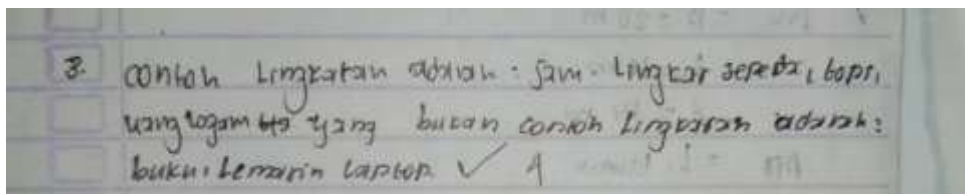 3. contoh Lingkaran adalah : Jam. Lingkar sepeda, topi,
uang logam yang bukan contoh Lingkaran adalah :
buku. Lemarin Laptop. ✓ A